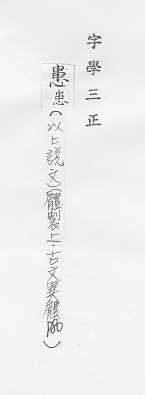 字學三正
患(以上說文)(體製上·古文異體)